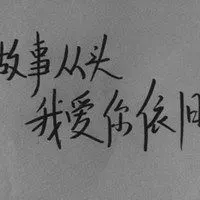 故事从头
我爱你依旧